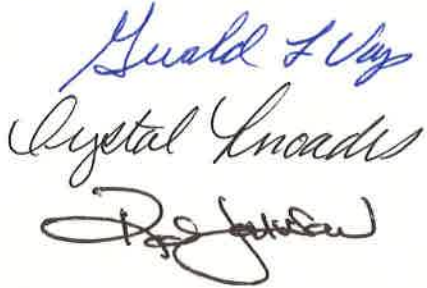 Gerald L Way
Crystal Rhoades
Rod Johnson